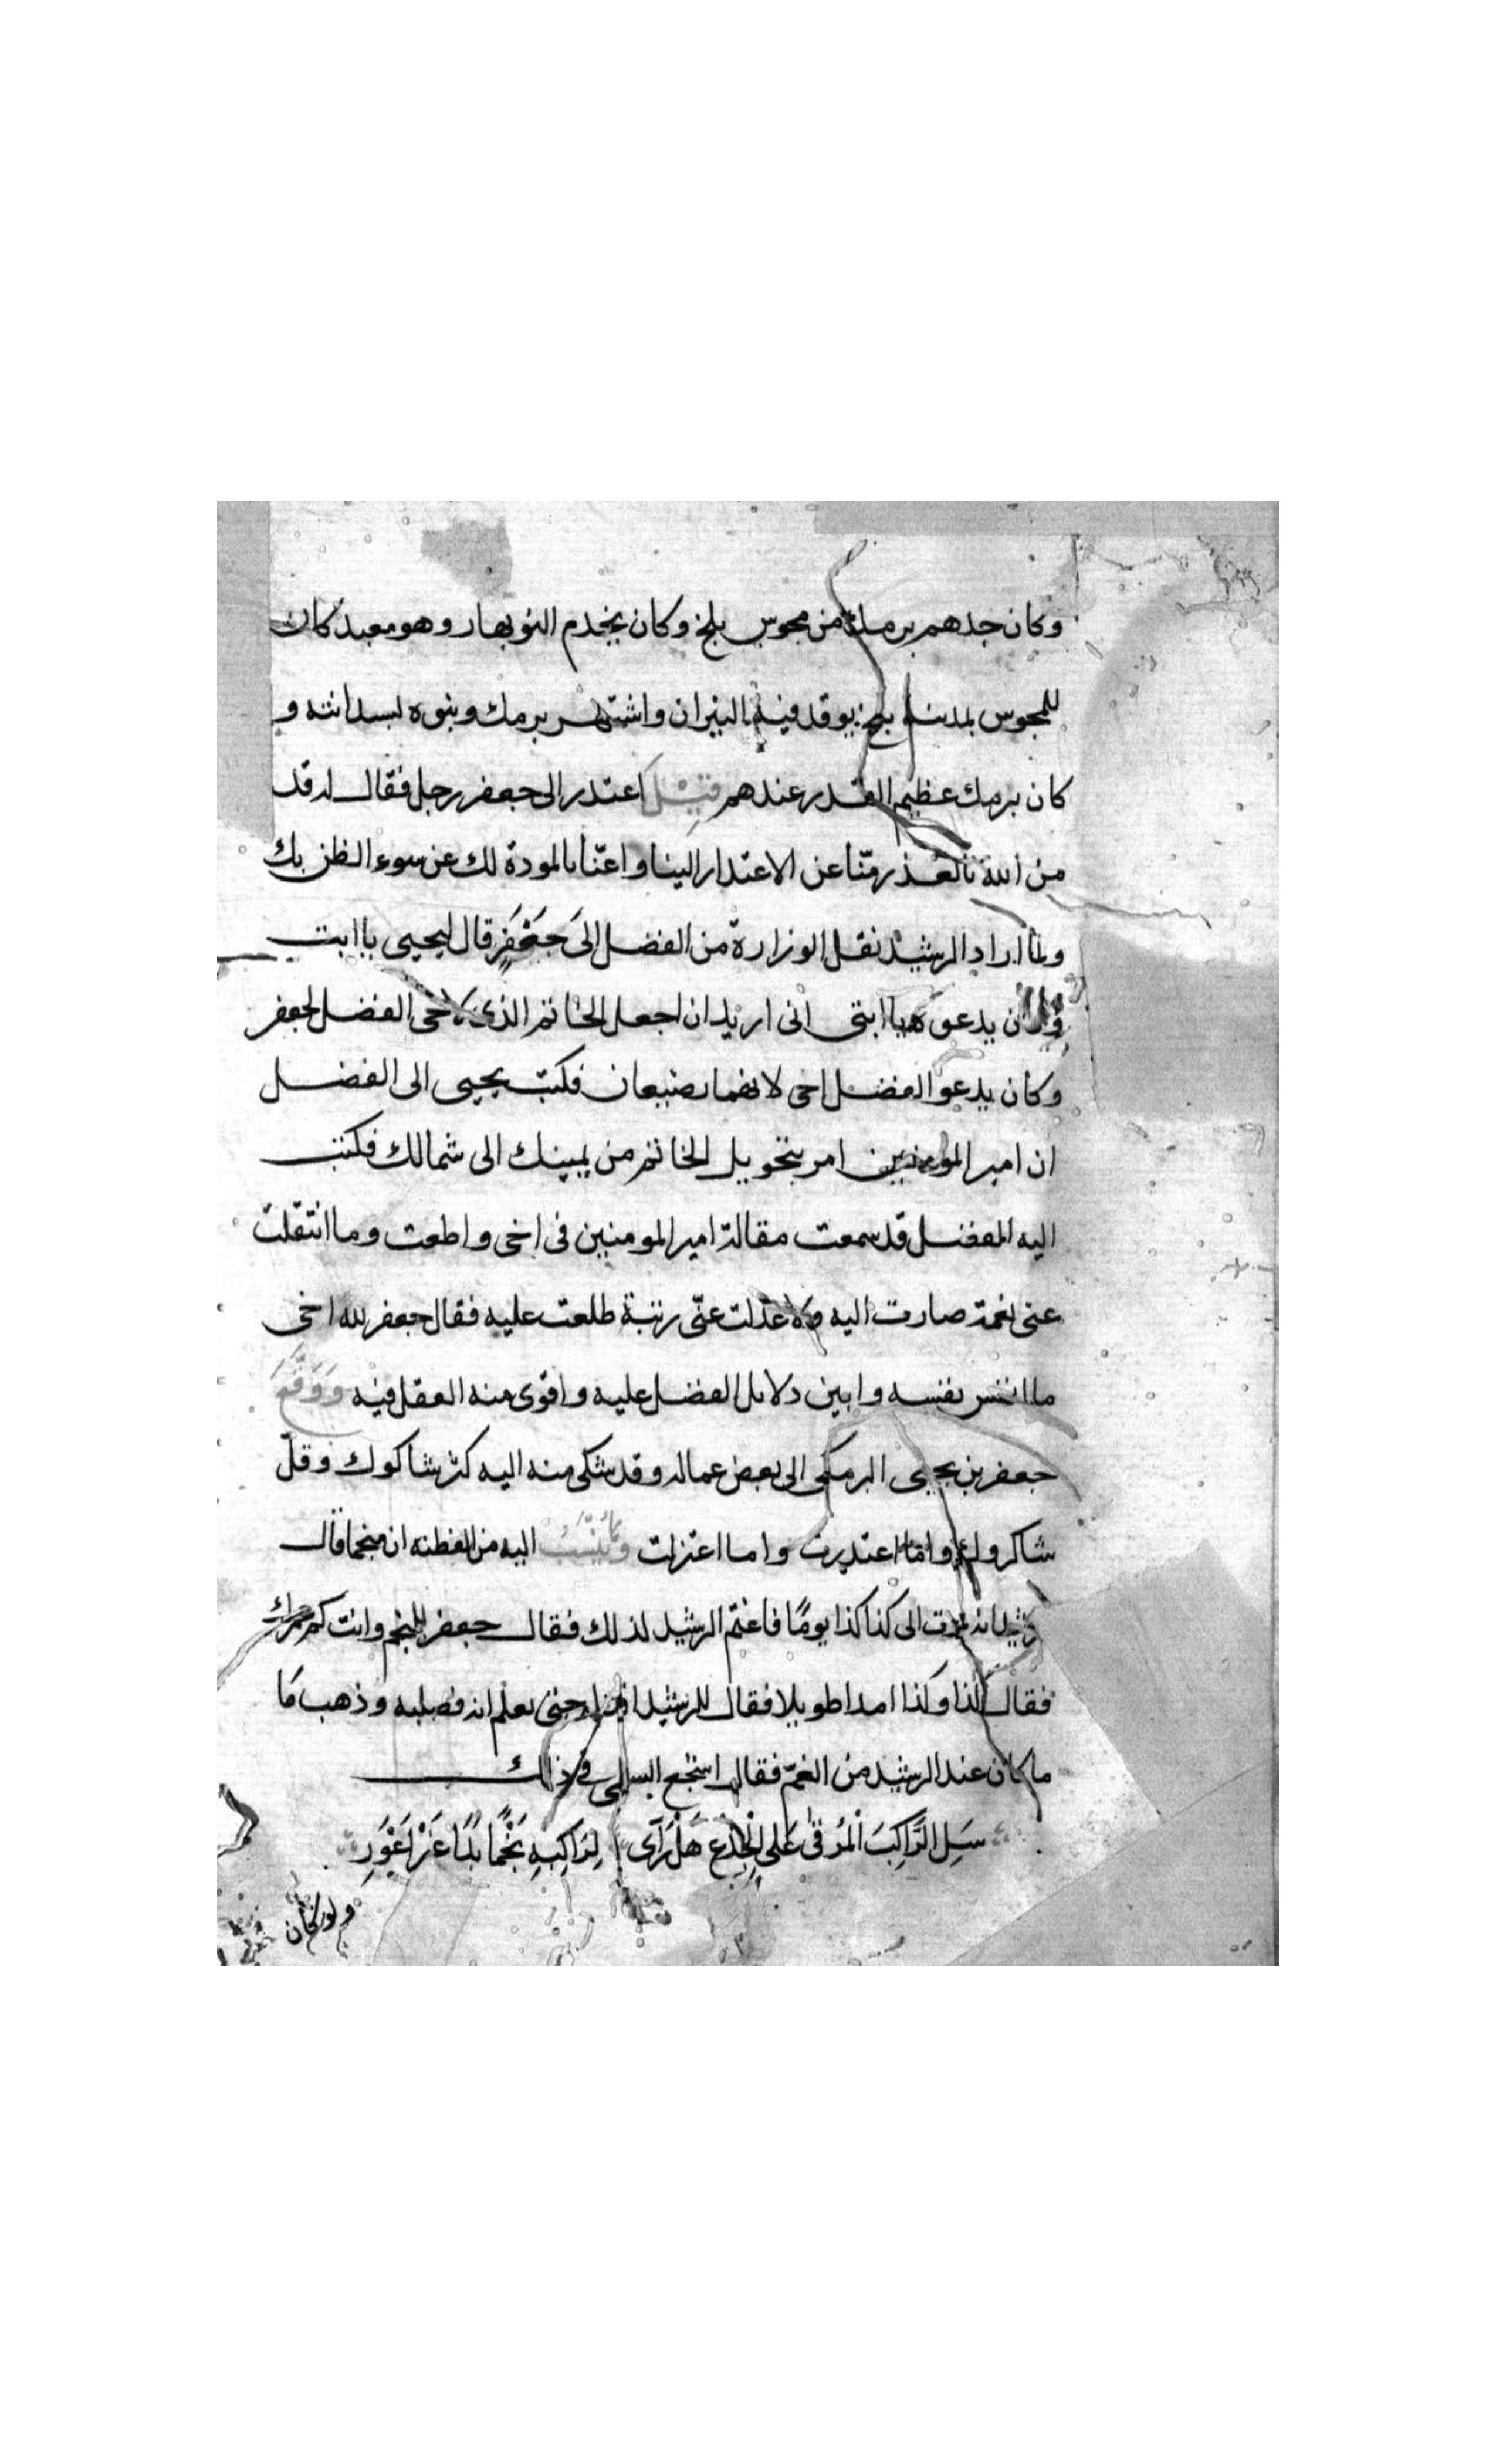 وكان جدهم برمك من مجوس بلخ وكان يخدم النوبهار وهو معبد كان
للمجوس بمدينة بلخ يوقد فيه النيران واشتهر برمك وبنوه بسدانته و
كان برمك عظيم القدر عندهم قيل اعتذر الى جعفر رجل فقال له قد
من الله بالعذر منا عن الاعتذار الينا واغنانا بالمودة لك عن سوء الظن بك
ولما اراد الرشيد نقل الوزارة من الفضل الى جَعْفَرٍ قال ليحيى يا ابت
وكان يدعوه يا ابتى انى اريد ان اجعل الخاتم الذى لاخى الفضل لجعفر
وكان يدعو الفضل اخى لانهما رضيعان فكتب يحيى الى الفضل
ان امير المومنين امر بتحويل الخاتم من يمينك الى شمالك فكتب
اليه الفضل قد سمعت مقالة امير المومنين فى اخى واطعت وما انتقلت
عنى نعمة صارت اليه ولا عنى رتبة طلعت عليه فقال جعفر لله اخى
ما انفس نفسه وابين دلايل الفضل عليه واقوى منه العقل فيه وَوَقَّعَ
جعفر بن يحيى البرمكى الى بعض عماله وقد شكى منه اليه كثر شاكوك وقلّ
شاكروك واما اعتدلت واما اعتزلت وَمَا يُنْسَبُ اليه من الفطنه ان منجما قال
يموت الى كذا كذا يومًا فاغتمّ الرشيد لذلك فقال جعفر للمنجم وانت كم عمرك
فقال كذا وكذا امدا طويلا فقال للرشيد اقتله حتى تعلم انه فصلبه وذهب مَا
ما كان عند الرشيد من الغمّ فقال اشجع السلمى فى ذلك
سَلِ الرَّاكِبَ الْمُوفى عَلى الْجِذْعِ هَلْ رَآى لِرَاكِبِهِ نَجْمًا بَدَا غَيْرَ اَعْوَرِ
ولو كان